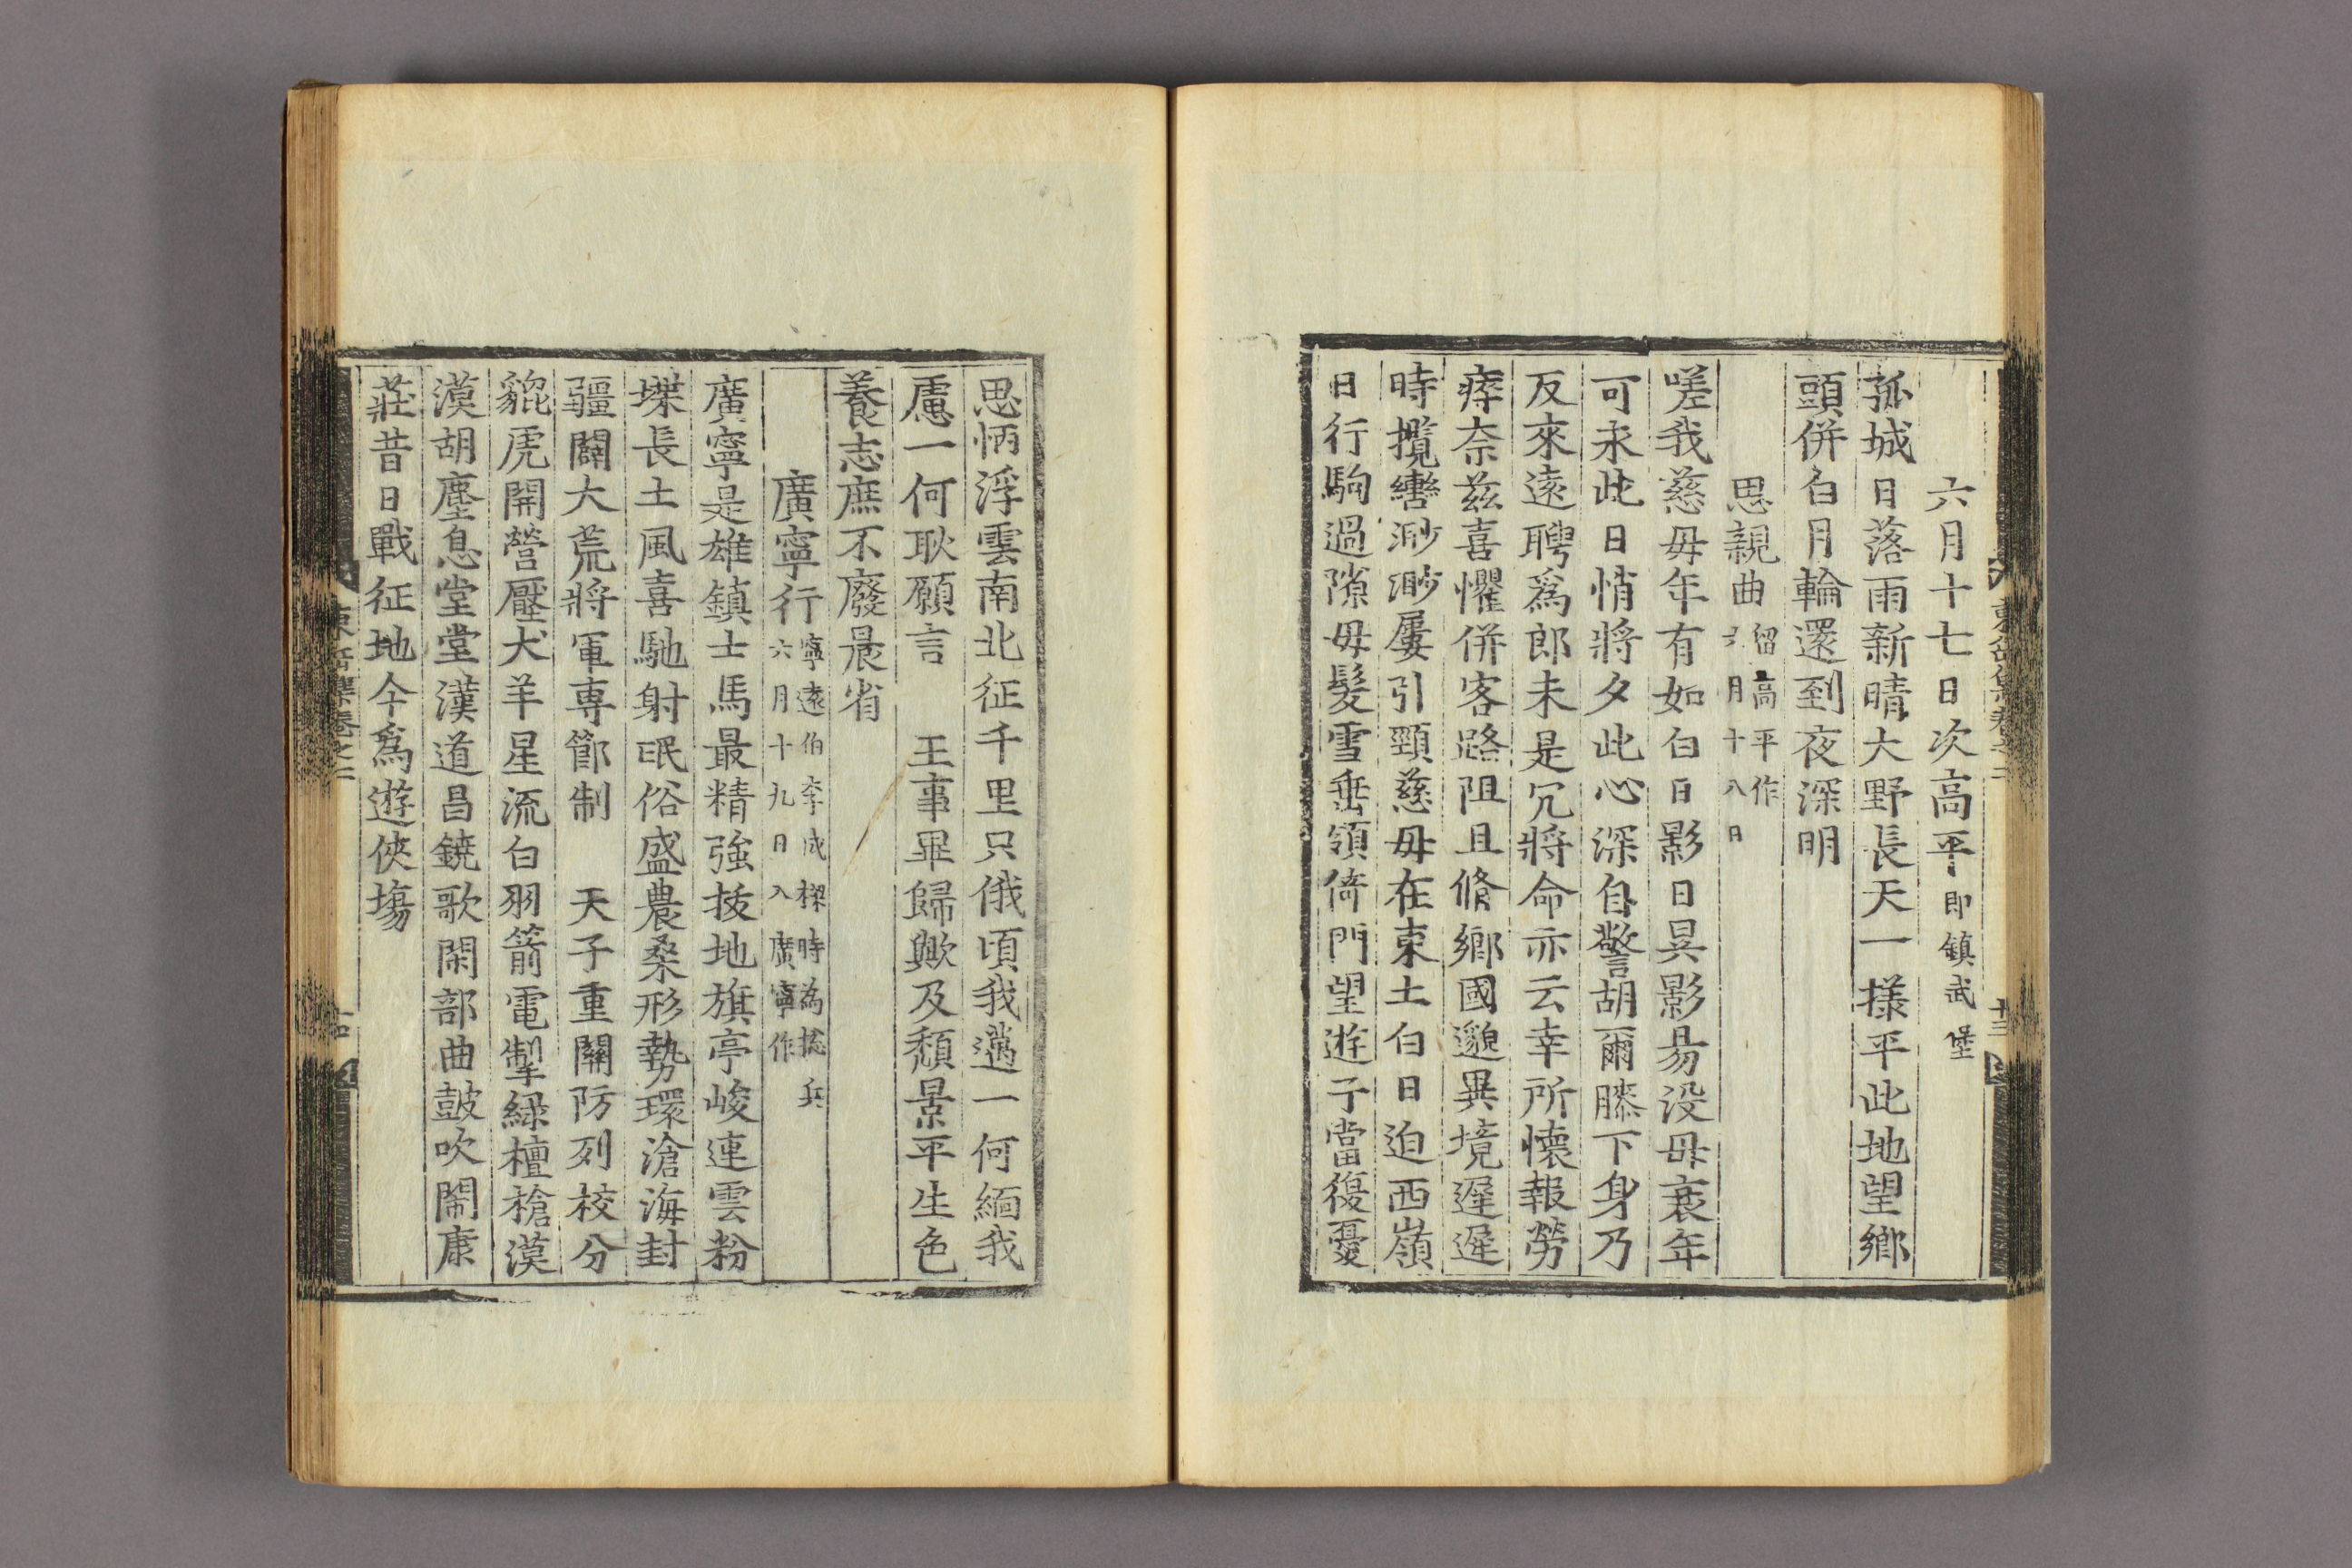 六月十七日次高平即鎮武堡
孤城日落雨新晴大野長天一樣平此地望鄉
頭併白月輪還到夜深明
思親曲留高平作
月十八日
嗟我慈母年有如白日影日昃影易没母衰年
可永此日悄將夕此心深自警胡爾膝下身乃
反來遠聘爲郎未是冗將命亦云幸所懷報勞
瘁奈茲喜懼併客路阻且脩鄉國邈異境遲遲
時攬轡渺渺屢引頸慈母在東土白日迫西嶺
日行駒過隙母髮雪垂領倚門望遊子當復憂
思怲浮雲南北征千里只俄頃我邁一何緬我
慮一何耿願言 王事畢歸歟及頹景平生色
養志庶不廢晨省
廣寧行寧遠伯李成樑時為摠兵
六月十九日入廣寧作
廣寧是雄鎮士馬最精強拔地旗亭峻連雲粉
堞長土風喜馳射民俗盛農桑形勢環滄海封
疆闢大荒將軍專節制 天子重關防列校分
貔虎開營壓犬羊星流白羽箭電掣綠檀槍漠
漠胡塵息堂堂漢道昌鐃歌閑部曲鼓吹鬧康
莊昔日戰征地今爲遊俠場
十三
十四